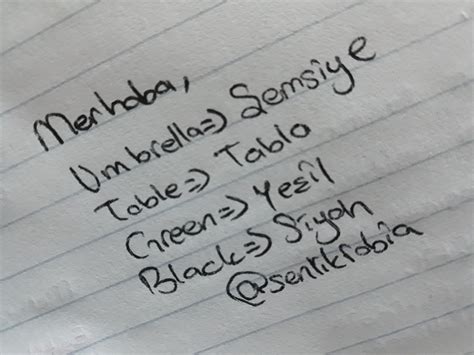 Merhaba,
Umbrella=> Semsiye
Table=> Tablo
Green=> Yesil
Black=> Siyah
@sentikfobia